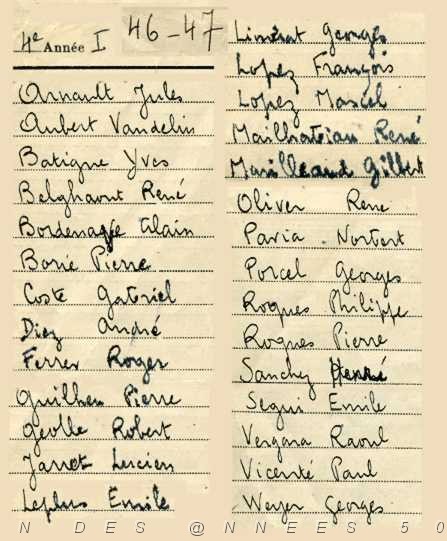 4e Année I 46-47
Arnault Jules
Aubert Vandelin
Batigne Yves
Belghaout René
Bordenave Alain
Borié Pierre
Coste Gabriel
Diez André
Ferrer Roger
Guilhem Pierre
Geolle Robert
Jarret Lucien
Leplus Emile
Limérat Georges
Lopez François
Lopez Marcel
René
Gilbert
Oliver Rene
Pavia Norbert
Porcel Georges
Roques Philippe
Roques Pierre
Sanchez
Segui Emile
Vergara Raoul
Vicenté Paul
Weyer Georges
N DES @NNEES 50